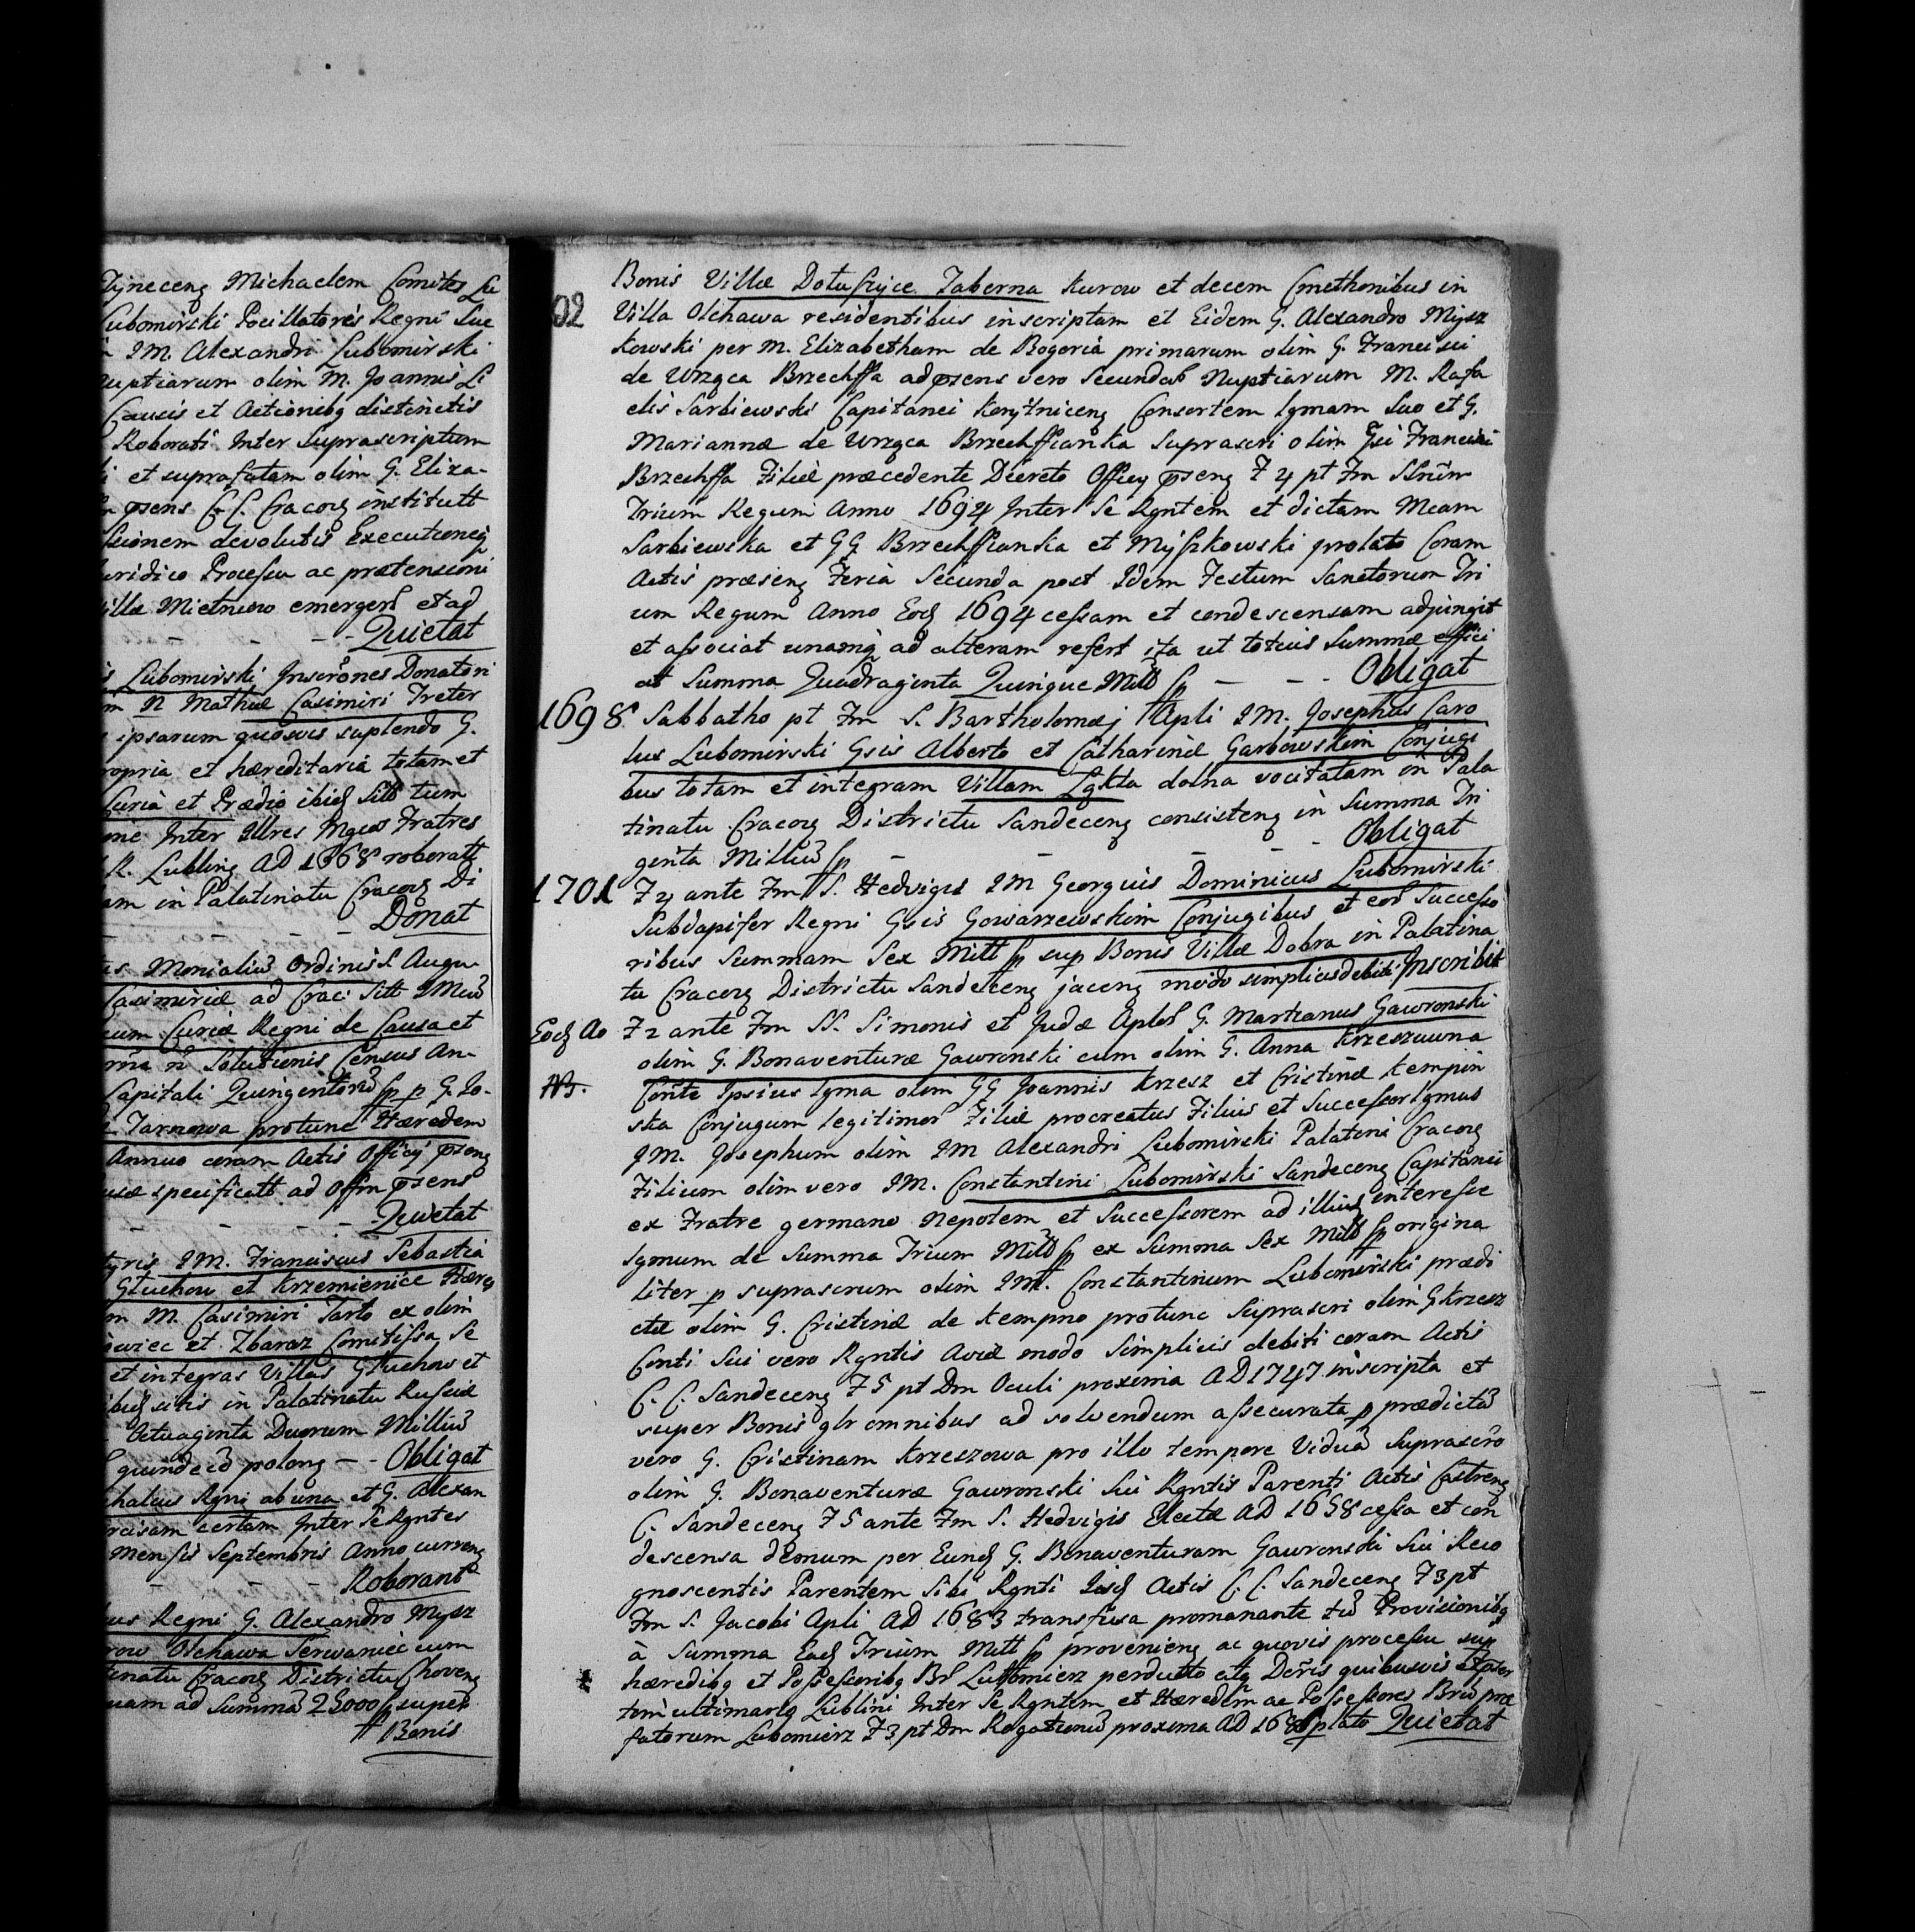 Tynecens Michaelem Comites Lu
Lubomirski Pocillatoris Regni Suc
IM. Alexandri Lubomirski
nuptiarum olim M. Joannis
Causis et Actionibg distinctis
Roborati Inter Suprascriptum
et suprafatam olim G. Eliza-
psens C. C. Cracovs institutt
ssionem devolutis Executioneq
uridico Processu ac prætensioni
illæ Mietniow emergen et ad
Quietat
Lubomirski Inscrōnes Donatori
N Mathiæ Casimiri Treter
ipsarum quosvis suplendo G.
propria et hæreditaria totam et
Curia et Prædio ibid Sitt tum
one Inter Illres Mgcos Fratres
R. Lublins AD 1668 roboratt
am in Palatinatu Cracovs Di
Donat
Monialiū Ordinis S. Augu-
Casimiriæ ad Crac: Sitt IMcū
cum Curiæ Regni de Causa et
Solutionis Census An-
Capitali Quingentorū fp p G. Jo-
Tarnowa protunc Hæredem
Annuo coram Actis Officij psens
specificatt ad Offm psens
Quietat
IM. Franciscus Sebastia
Głuchow et Krzemienice Hæres
M. Casimiri Tarło ex olim
wiec et Zbaraz Comitissa Se
et integras Villas Głuchow et
sitis in Palatinatu Russiæ
Octuaginta Duorum Milliū
quindecī prolong - - Obligat
chalcus Rgni ab una et G. Alexan
certam Inter Se Rgntes
Mensis Septembris Anno currens
Roborant
Regni G. Alexandro Mysz
row Olchawa Serwaniec cum
tinatu Cracovs Districtu Chovens
ad Summā 25000 fp super
Bonis
92
Bonis Villæ Dołuszyce Taberna Kurow et decem Cmethonibus in
Villa Olchawa residentibus inscriptam et Eidem G. Alexandro Mysz
kowski per M. Elizabetham de Bogoria primarum olim G. Francisci
de Wrząca Brzechffa ad psens vero Secundar Nuptiarum M. Rafa
elis Sarbiewski Capitanei Korytnicens Consortem lgmam Suo et G.
Mariannæ de Wrząca Brzechffianka Suprascri olim Gsi Francisci
Brzechffa Filiæ præcedente Decreto Officij psens F 4 pt Fm SSrūm
Trium Regum Anno 1694 Inter Se Rgntem et dictam Mcam
Sarbiewska et GG Brzechffianka et Myszkowski prolato Coram
Actis præsens Feria Secunda post Idem Festum Sanctorum Tri
um Regum Anno Eod 1694 cessam et condescensam adjungit
et associat unamq ad alteram refert ita ut totius Summæ effici
at Summa Quadraginta Quinque Mill fp - - - Obligat
1698. Sabbatho pt Fm S. Bartholomæj Apli IM. Josephus Caro
lus Lubomirski Gsis Alberto et Catharinæ Garbowskim Conjugi
bus totam et integram Villam Łąkta dolna vocitatam in Pala
tinatu Cracovs Districtu Sandecens consistens in Summa Tri
ginta Milliū fp - - - - Obligat
1701 F 4 ante Fm S. Hedvigis IM Georgius Dominicus Lubomirski
Subdapifer Regni Gsis Gowarzewskim Conjugibus et eor Successo
ribus Summam Sex Mill fp sup Bonis Villæ Dobra in Palatina
tu Cracovs Districtu Sandecens jacens modo simplicis debiti Inscribit
Eod Ao F 2 ante Fm SS. Simonis et Judæ Aplor G. Martianus Gawronski
olim G. Bonaventuræ Gawronski cum olim G. Anna Krzeszowna
NB. Conte Ipsius lgma olim GG Joannis Krzesz et Cristinæ Kempin
ska Conjugum legitimor Filiæ procreatus Filius et Successor lgmus
IM. Josephum olim IM Alexandri Lubomirski Palatini Cracovs
Filium olim vero IM. Constantini Lubomirski Sandecens Capitanei
ex Fratre germano Nepotem et Successorem ad illius interesse
lgmum de Summa Trium Mill fp ex Summa Sex Mill fp origina
liter p suprascrum olim IM. Constantinum Lubomirski prædi
ctæ olim G. Cristinæ de Kempno protunc Suprascri olim G. Krzesz
Conti Sui vero Rgntis Aviæ modo Simplicis debiti coram Actis
C. C. Sandecens F 5 pt Dm Oculi proxima AD 1747 inscripta et
super Bonis glr omnibus ad solvendum assecurata p prædictā
vero G. Cristinam Krzeszowa pro illo tempore Viduā Suprascro
olim G. Bonaventuræ Gawronski Sui Rgntis Parenti Actis Castrens
C. Sandecens F 5 ante Fm S. Hedvigis Electæ AD 1658 cessa et con
descensa demum per Eund G. Bonaventuram Gawronski Sui Reco
gnoscentis Parentem Sibi Rgnti Iisd Actis C. C. Sandecens F 3 pt
Fm S. Jacobi Apli AD 1683 transfusa promanante tū Provisionibg
à Summa Ead Trium Mill fp proveniens ac quovis processu sup
hæredibg et Possessoribg Br Lubomierz perducto atq Decris quibusvis
tim ultimario Lublini Inter Se Rgntem et Hæredem ac Possessores Brū præ
fatorum Lubomierz F 3 pt Dm Rogationū proxima AD plato Quietat